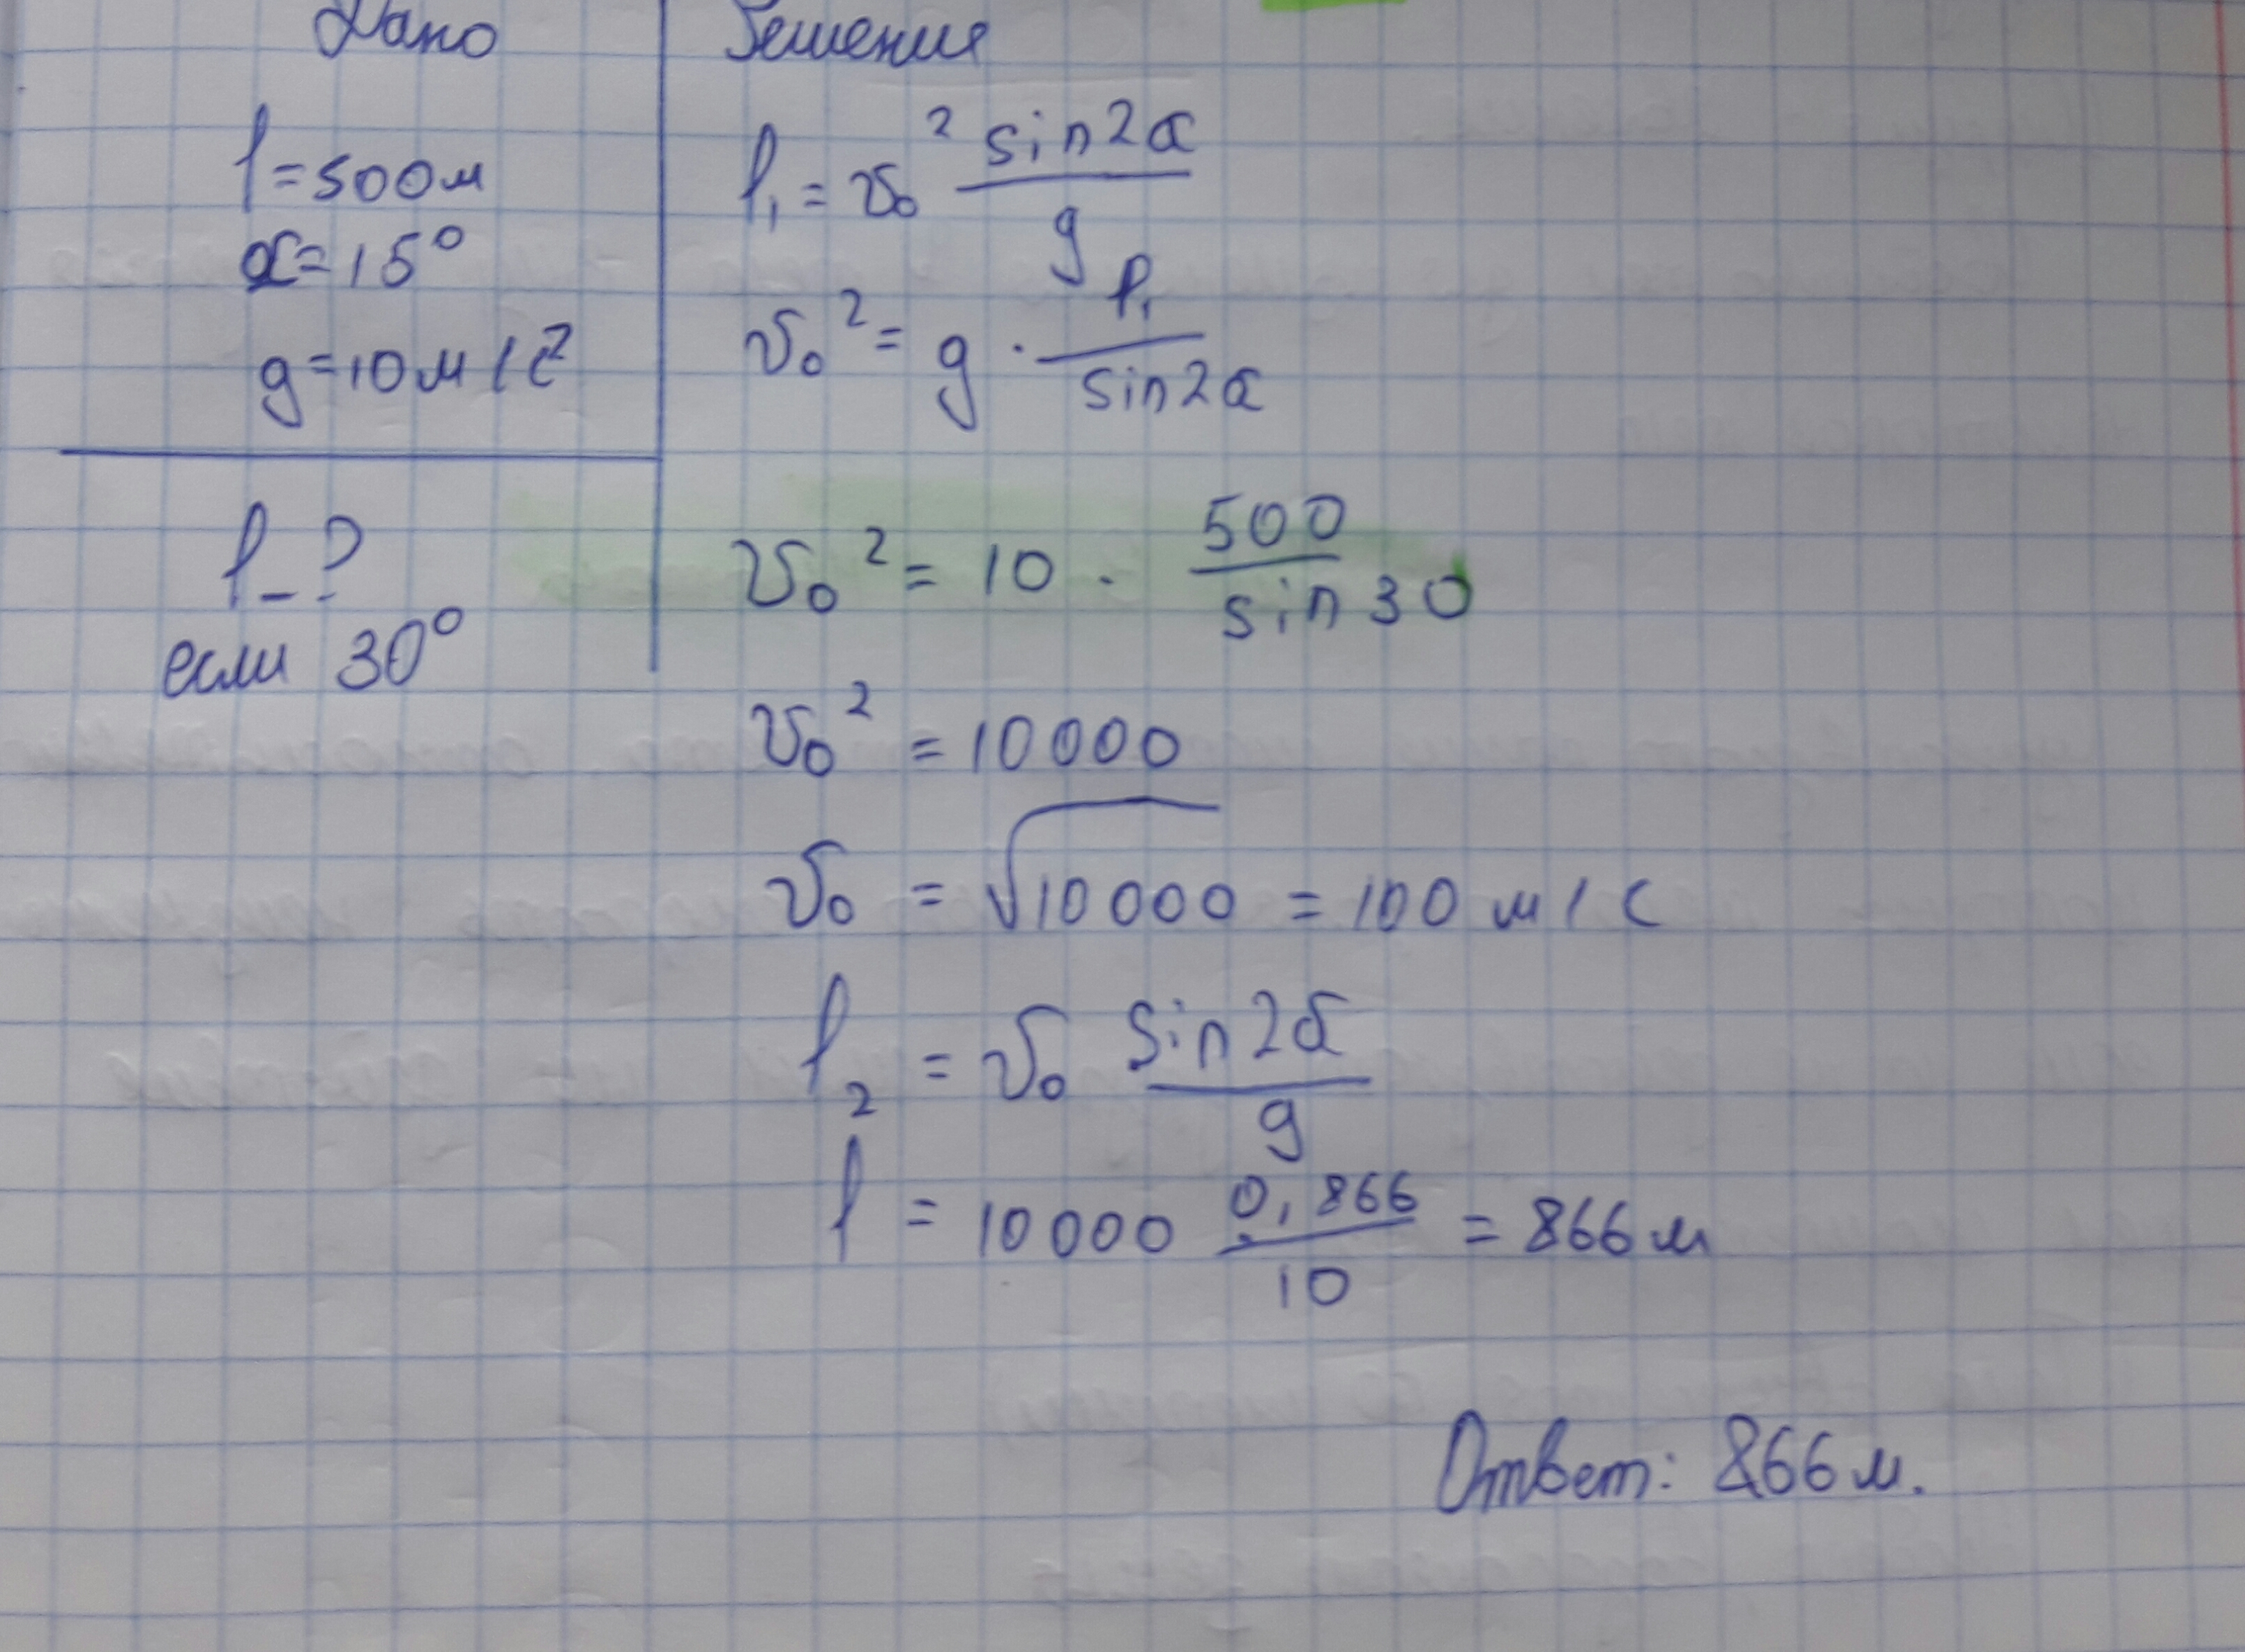 Дано
l=500м
α=15°
g=10м/с²
l-?
если 30°
Решение
l₁=v₀² sin2α/g
v₀²=g·l₁/sin2α
v₀²=10·500/sin30
v₀²=10000
v₀=√10000=100м/с
l₂=v₀ sin2α/g
l=10000 0,866/10=866м
Ответ: 866м.